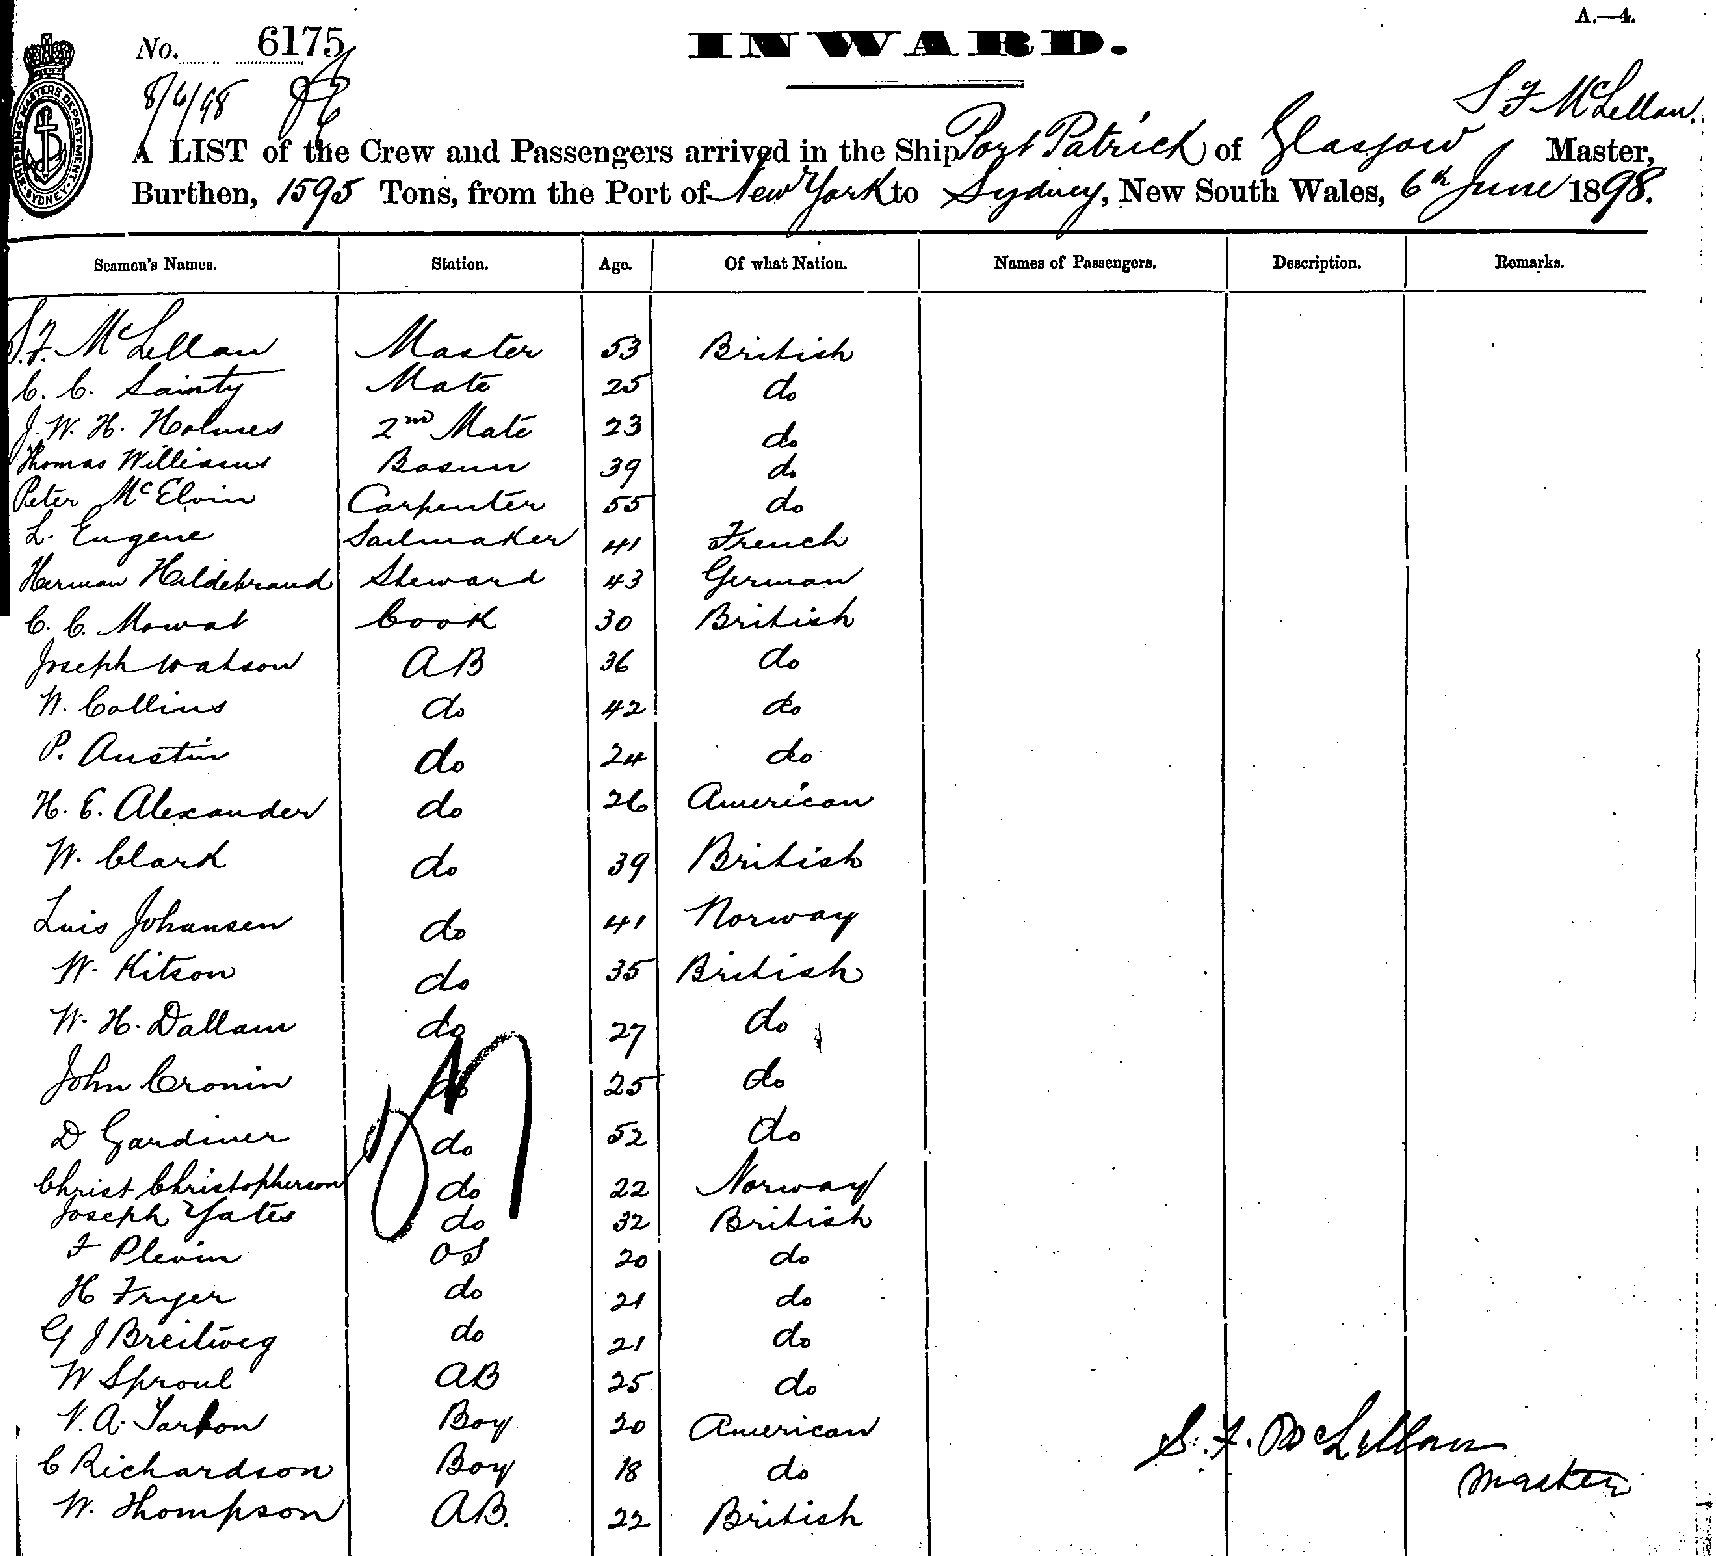 A.—4.
No. 6175
INWARD.
8/6/98
S F McLellan.
A LIST of the Crew and Passengers arrived in the Ship Port Patrick of Glasgow Master,
Burthen, 1595 Tons, from the Port of New York to Sydney, New South Wales, 6th June 1898.
Seamen's Names. Station. Age. Of what Nation. Names of Passengers. Description. Remarks.
S.F. McLellan Master 53 British
C. C. Sainty Mate 25 do
J. W. H. Holmes 2nd Mate 23 do
Thomas Williams Bosun 39 do
Peter McElvin Carpenter 55 do
L. Eugene Sailmaker 41 French
Herman Hildebrand Steward 43 German
C. C. Mowat Cook 30 British
Joseph Watson AB 36 do
W. Collins do 42 do
P. Austin do 24 do
H. E. Alexander do 26 American
W. Clark do 39 British
Luis Johansen do 41 Norway
W. Kitson do 35 British
W. H. Dallam do 27 do
John Cronin do 25 do
D Gardiner do 52 do
Christ Christopherson do 22 Norway
Joseph Yates do 32 British
F Plevin OS 20 do
H Fryer do 21 do
G J Breitweg do 21 do
W Sproul AB 25 do
V. A. Tarbon Boy 20 American
C Richardson Boy 18 do
W. Thompson AB. 22 British
S. F. McLellan
Master